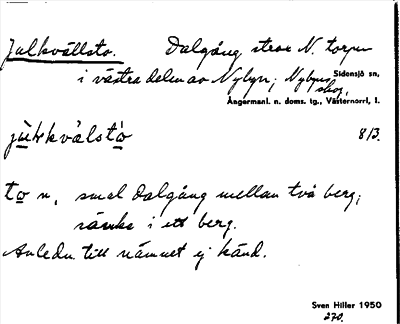 Julkvällsto. Dalgång strax N. torpen
i västra delen av Nybyn; Nybyns skog,
Sidensjö sn,
Ångermanl. n. doms. tg., Västernorrl. l.
8/3.
to n, smal dalgång mellan två berg;
sänka i ett berg.
Anledn till namnet ej känd.
Sven Hiller 1950
270.